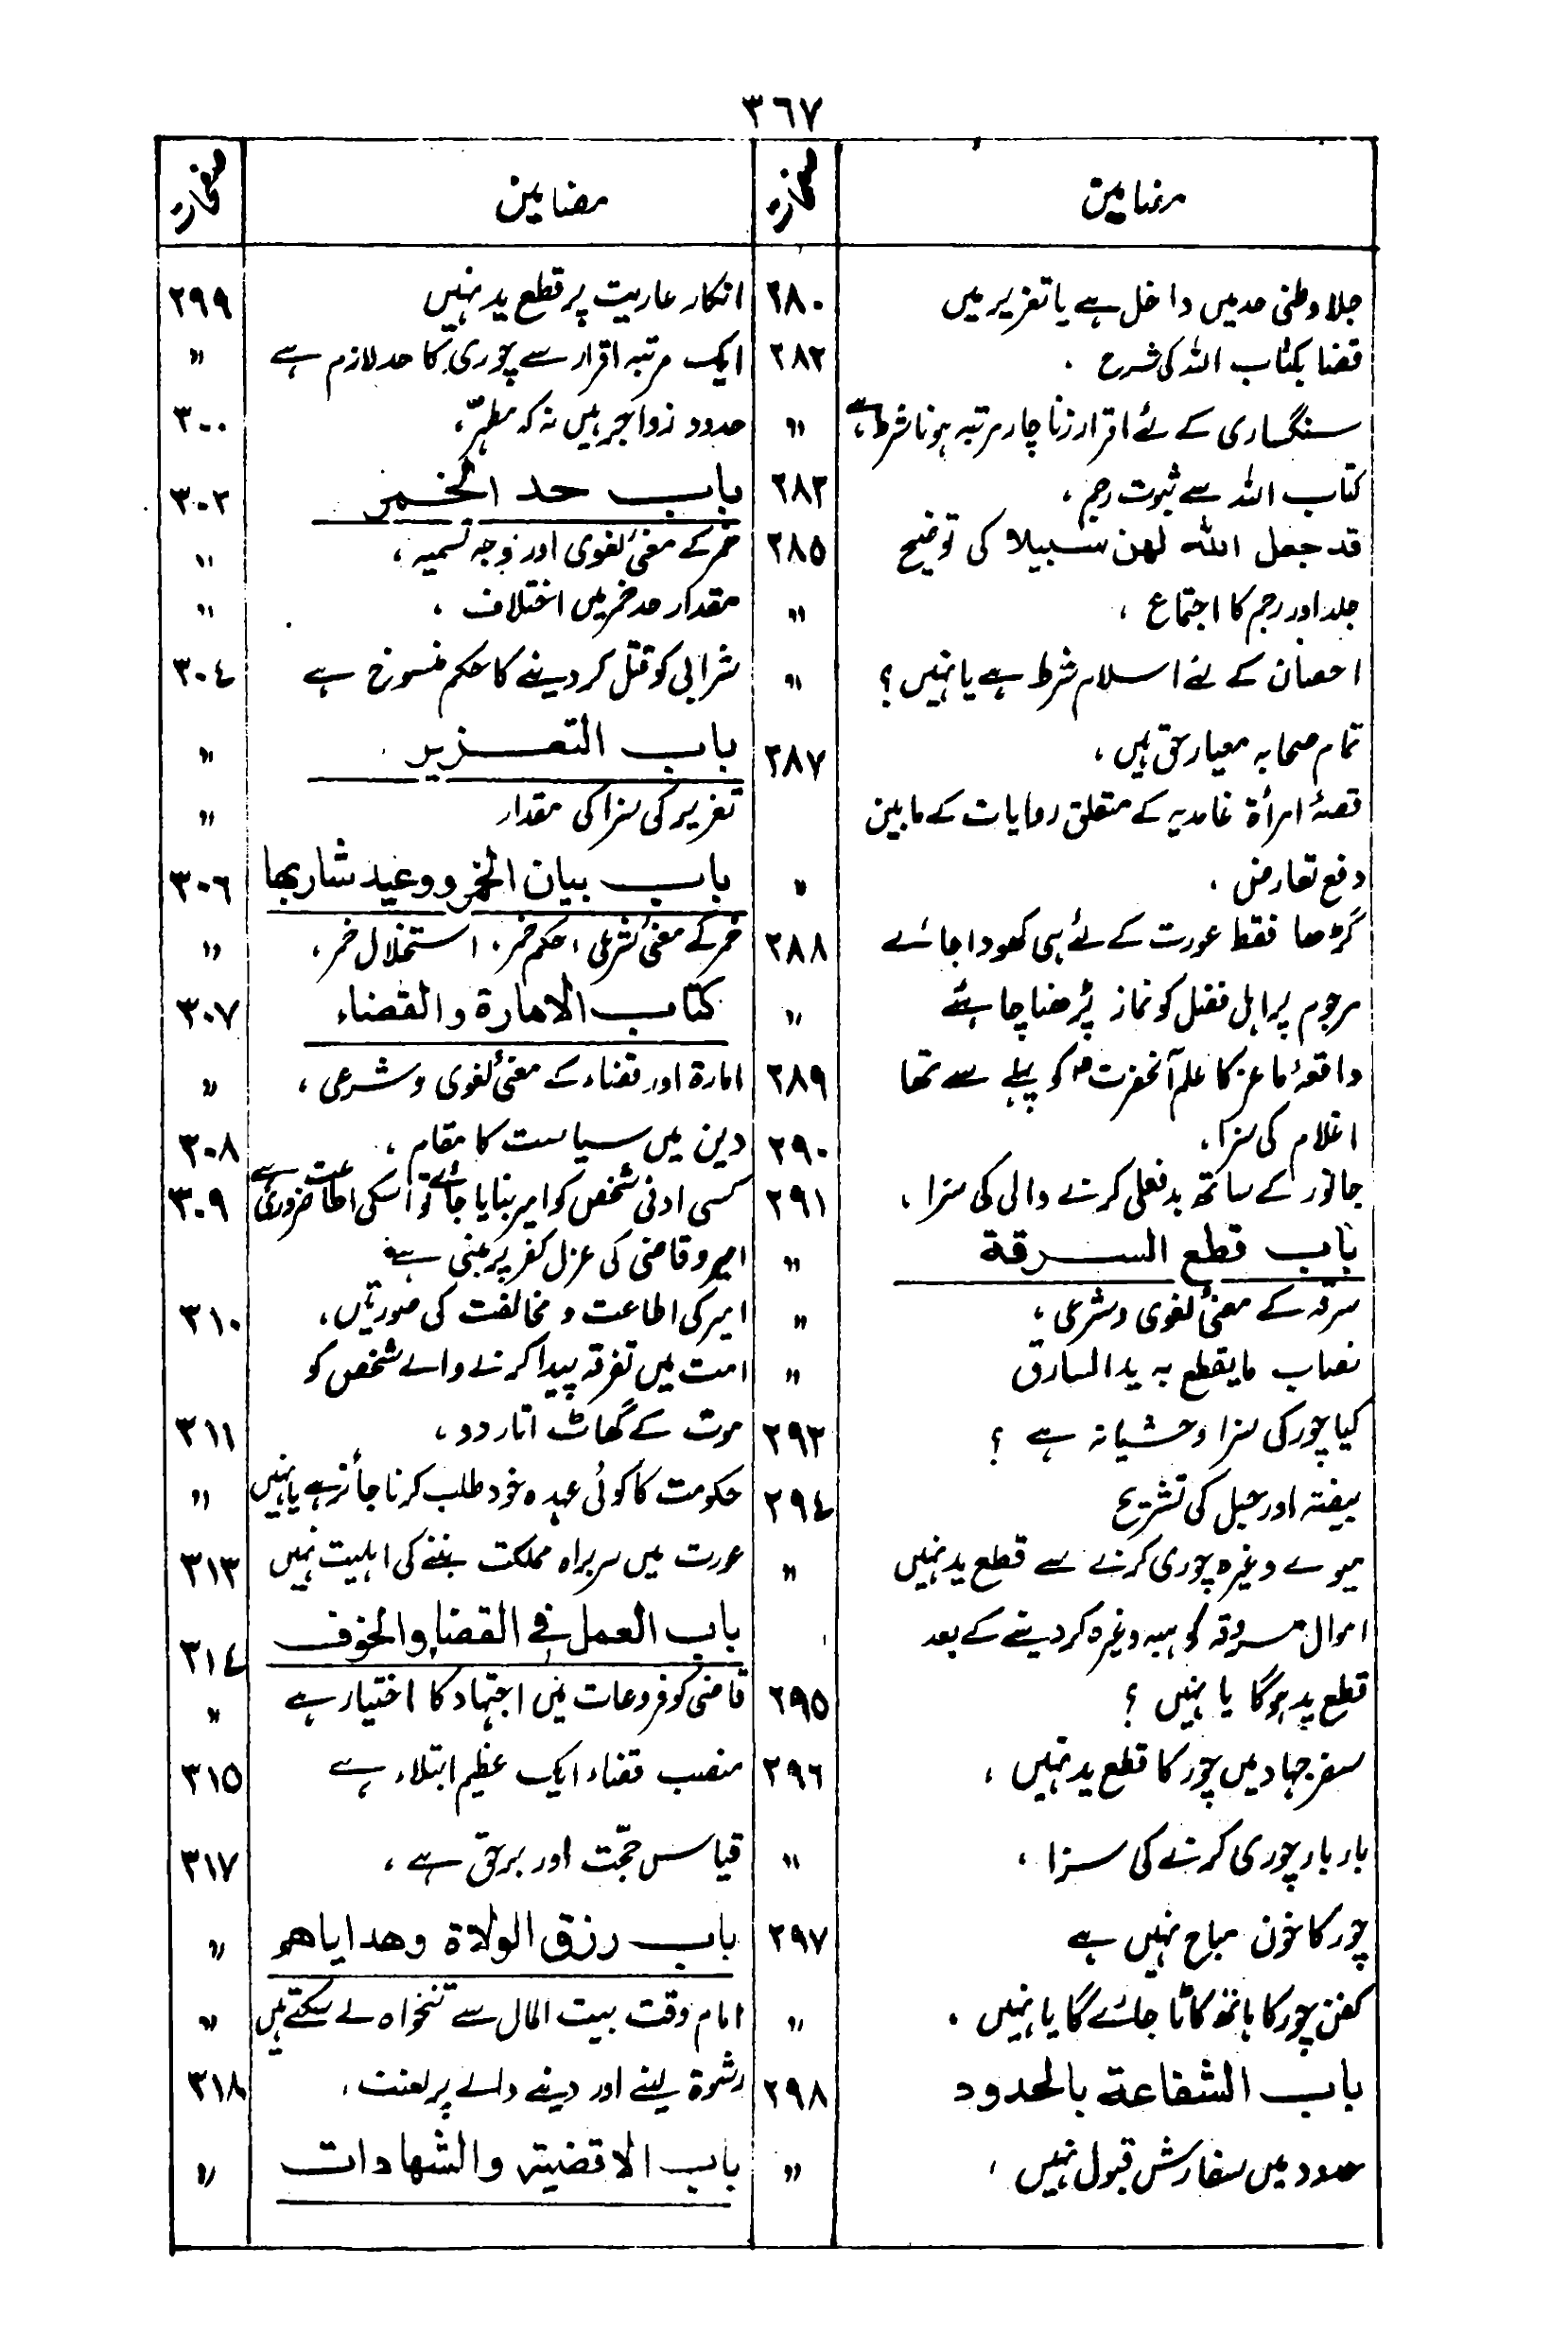 ۳٦۷
مضامین صفحات
جلا وطنی حد میں داخل ہے یا تعزیر میں ۲۸۰
قضا بکتاب اللہ کی شرح ۰ ۲۸۲
سنگساری کے لئے اقرار زنا چار مرتبہ ہونا شرط ہے، "
کتاب اللہ سے ثبوت رجم، ۲۸۳
قد جعل اللہ لھن سبیلا کی توضیح ۲۸۵
جلد اور رجم کا اجتماع، "
احصان کے لئے اسلام شرط ہے یا نہیں؟ "
تمام صحابہ معیار حق ہیں، ۲۸۷
قصۂ امرأۃ غامدیہ کے متعلق روایات کے مابین
دفع تعارض ۰ "
گڑھا فقط عورت کے لئے ہی کھودا جائے ۲۸۸
مرجوم پر اہل فضل کو نماز پڑھنا چاہئے "
واقعۂ ماعز کا علم آنحضرت ؐ کو پہلے سے تھا ۲۸۹
اغلام کی سزا، ۲۹۰
جانور کے ساتھ بدفعلی کرنے والی کی سزا، ۲۹۱
باب قطع السرقة "
سرقہ کے معنیٰ لغوی وشرعی، "
نصاب ما یقطع بہ ید السارق "
کیا چور کی سزا وحشیانہ ہے؟ ۲۹۳
بیضتہ اور حبل کی تشریح ۲۹٤
میوے وغیرہ چوری کرنے سے قطع ید نہیں "
اموال مسروقہ کو ہبہ وغیرہ کر دینے کے بعد
قطع ید ہوگا یا نہیں؟ ۲۹۵
سفر جہاد میں چور کا قطع ید نہیں، ۲۹٦
بار بار چوری کرنے کی سزا، "
چور کا خون مباح نہیں ہے ۲۹۷
کفن چور کا ہاتھ کاٹا جائے گا یا نہیں ۰ "
باب الشفاعة بالحدود ۲۹۸
حدود میں سفارش قبول نہیں، "
مضامین صفحات
انکار عاریت پر قطع ید نہیں ۲۹۹
ایک مرتبہ اقرار سے چوری کا حد لازم ہے "
حدود زواجر ہیں نہ کہ مطہّر، ۳۰۰
باب حد الخمر ۳۰۲
خمر کے معنیٰ لغوی اور وجہ تسمیہ، "
مقدار حد خمر میں اختلاف، "
شرابی کو قتل کر دینے کا حکم منسوخ ہے ۳۰٤
باب التعزیر "
تعزیر کی سزا کی مقدار "
باب بیان الخمر ووعید شاربھا ۳۰٦
خمر کے معنیٰ شرعی، حکم خمر، استخلال خمر، "
کتاب الامارة والقضاء ۳۰۷
امارۃ اور قضاء کے معنیٰ لغوی وشرعی، "
دین میں سیاست کا مقام، ۳۰۸
کسی ادنی شخص کو امیر بنایا جائے تو اسکی اطاعت ضروری ہے ۳۰۹
امیر وقاضی کی عزل کفر پر مبنی ہے
امیر کی اطاعت و مخالفت کی صورتیں، ۳۱۰
امت میں تفرقہ پیدا کرنے والے شخص کو
موت کے گھاٹ اتار دو، ۳۱۱
حکومت کا کوئی عہدہ خود طلب کرنا جائز ہے یا نہیں "
عورت میں سربراہ مملکت بننے کی اہلیت نہیں ۳۱۳
باب العمل فی القضاء والخوف ۳۱٤
قاضی کو فروعات میں اجتہاد کا اختیار ہے "
منصب قضاء ایک عظیم ابتلاء ہے ۳۱۵
قیاس حجّت اور برحق ہے، ۳۱۷
باب رزق الولاة وهدایاهم "
امام وقت بیت المال سے تنخواہ لے سکتے ہیں "
رشوۃ لینے اور دینے والے پر لعنت، ۳۱۸
باب الاقضیة والشهادات "